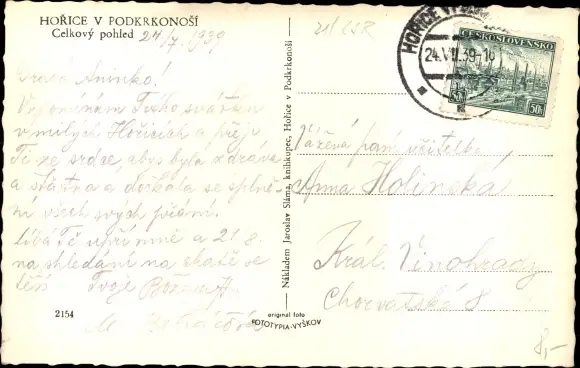 HOŘICE V PODKRKONOŠÍ
Celkový pohled 24/7. 1939
21/ČSR
HOŘICE V
24.VII.39-1
ČESKOSLOVENSKO
50h
Drahá Aninko!
Vzpomínám Tvého svátku
v milých Hořicích a přeji
Ti ze srdce, abys byla zdráva
a šťastna a dočkala se splně-
ní všech svých přání.
Líbá Tě upřímně a 21.8.
na shledání na zlaté se
těší Tvoje Božena
2154
Nákladem Jaroslav Sláma, knihkupec, Hořice v Podkrkonoší
original foto
FOTOTYPIA-VYŠKOV
Vážená paní učitelka
Anna Holinská
Král. Vinohrady
Chorvatská 8
8,-